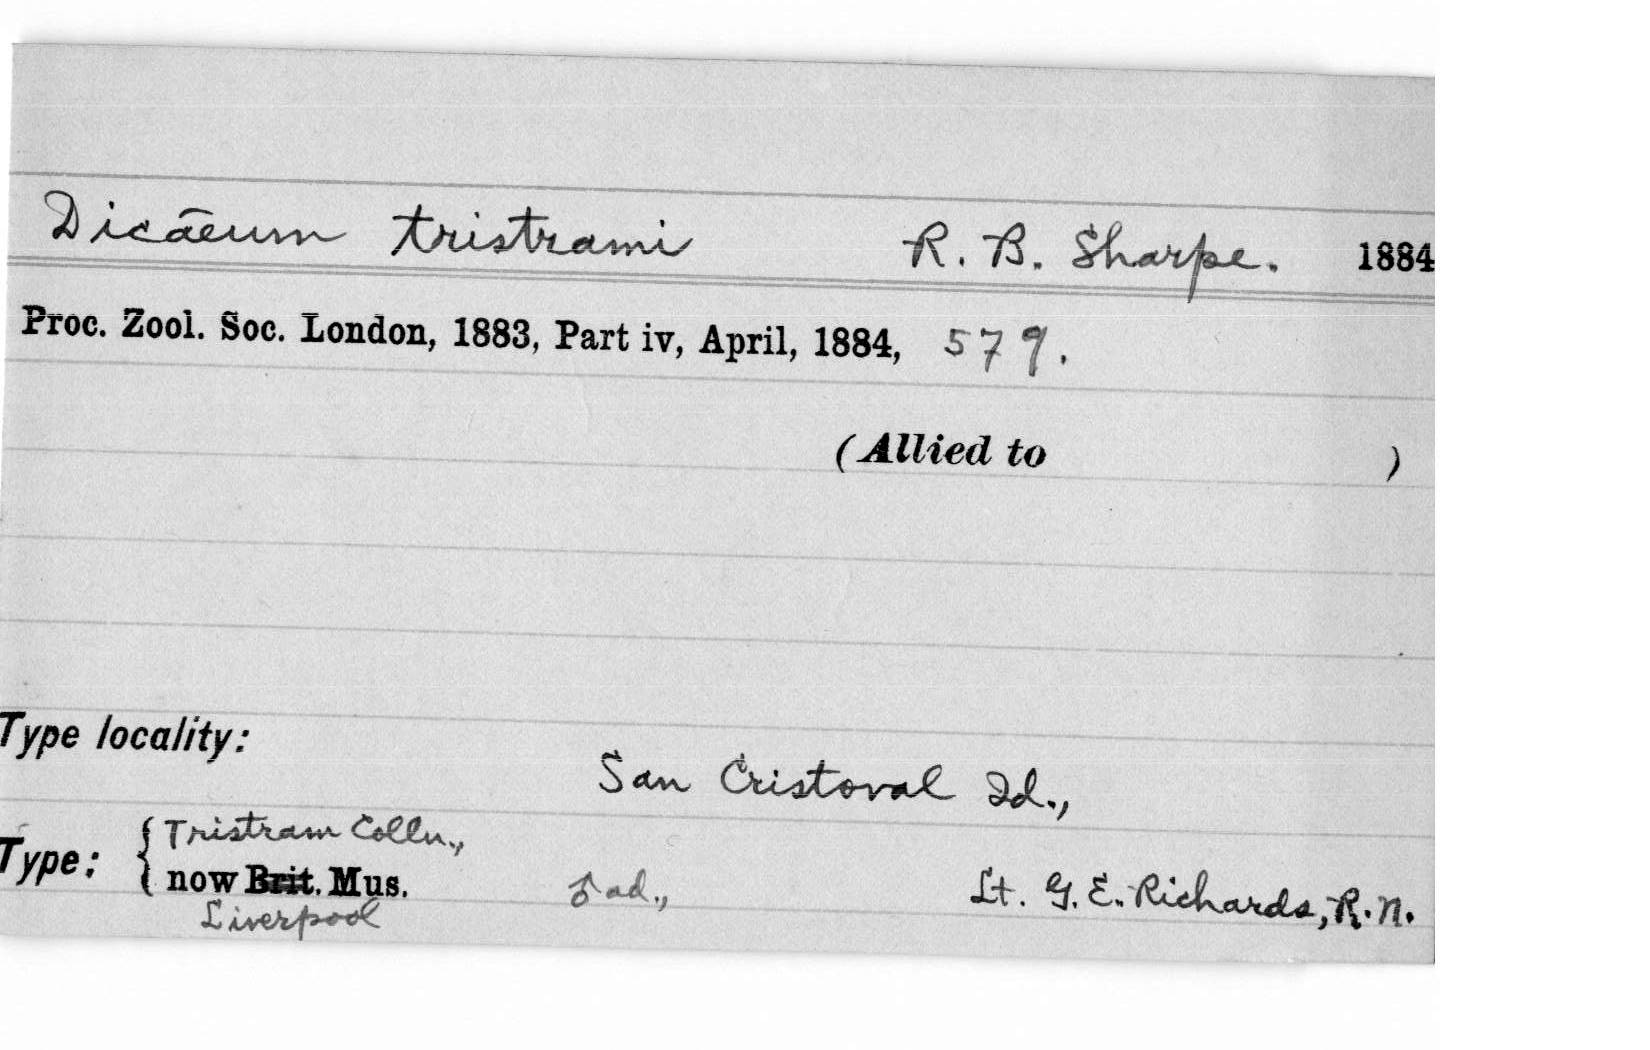 Dicāeum tristrami R. B. Sharpe. 1884
Proc. Zool. Soc. London, 1883, Part iv, April, 1884, 579.
(Allied to )
Type locality:
San Cristoval Id.,
Type: { Tristram Colln.,
now Brit. Mus. ♂ ad., Lt. G. E. Richards, R. N.
Liverpool